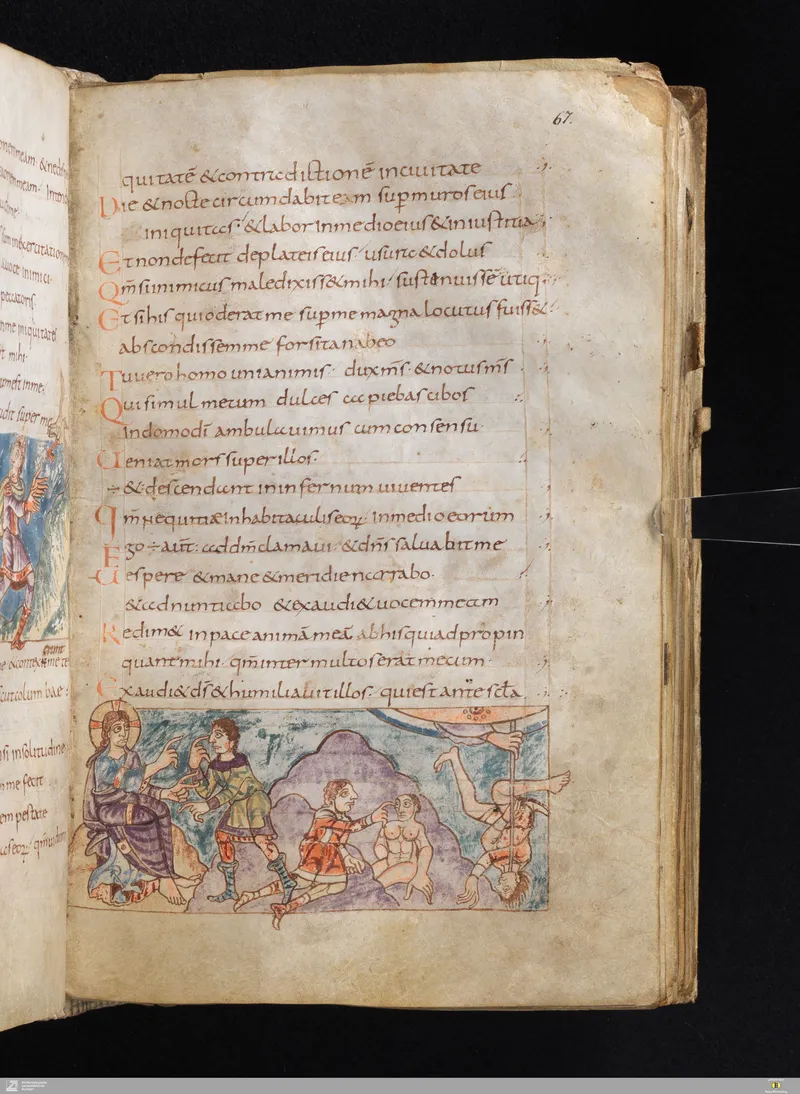 67.
quitatē & contradictionē incivitate
Die & nocte circumdabit eam sup muros eius
iniquitas. & labor inmedio eius & iniustitia
Et non defecit deplateis eius. usura & dolus
Qm̄ siinimicus maledixiss& mihi. sustinuissē utiq.
Et si his quioderat me supme magna locutus fuiss&
abscondissemme forsitan abeo
Tu vero homo unianimis. dux ms̄. & notus ms̄.
Qui simul mecum dulces capiebas cibos
Indomo dī ambulavimus cum consensu.
Ueniat mors super illos.
÷ & descendant in infernum viventes
Qm̄ nequitiae inhabitaculis eoꝝ. inmedio eorum
Ego ÷ aut̄: ad dm̄ clamavi. & dn̄s salvabit me
Uespere & mane & meridie narrabo.
& adnuntiabo & exaudi& vocem meam
Redim& in pace animā meā abhis qui adpropin
quant mihi. qm̄ inter multos erat mecum.
Exaudi& ds̄ & humiliavit illos. qui est ante scl̄a